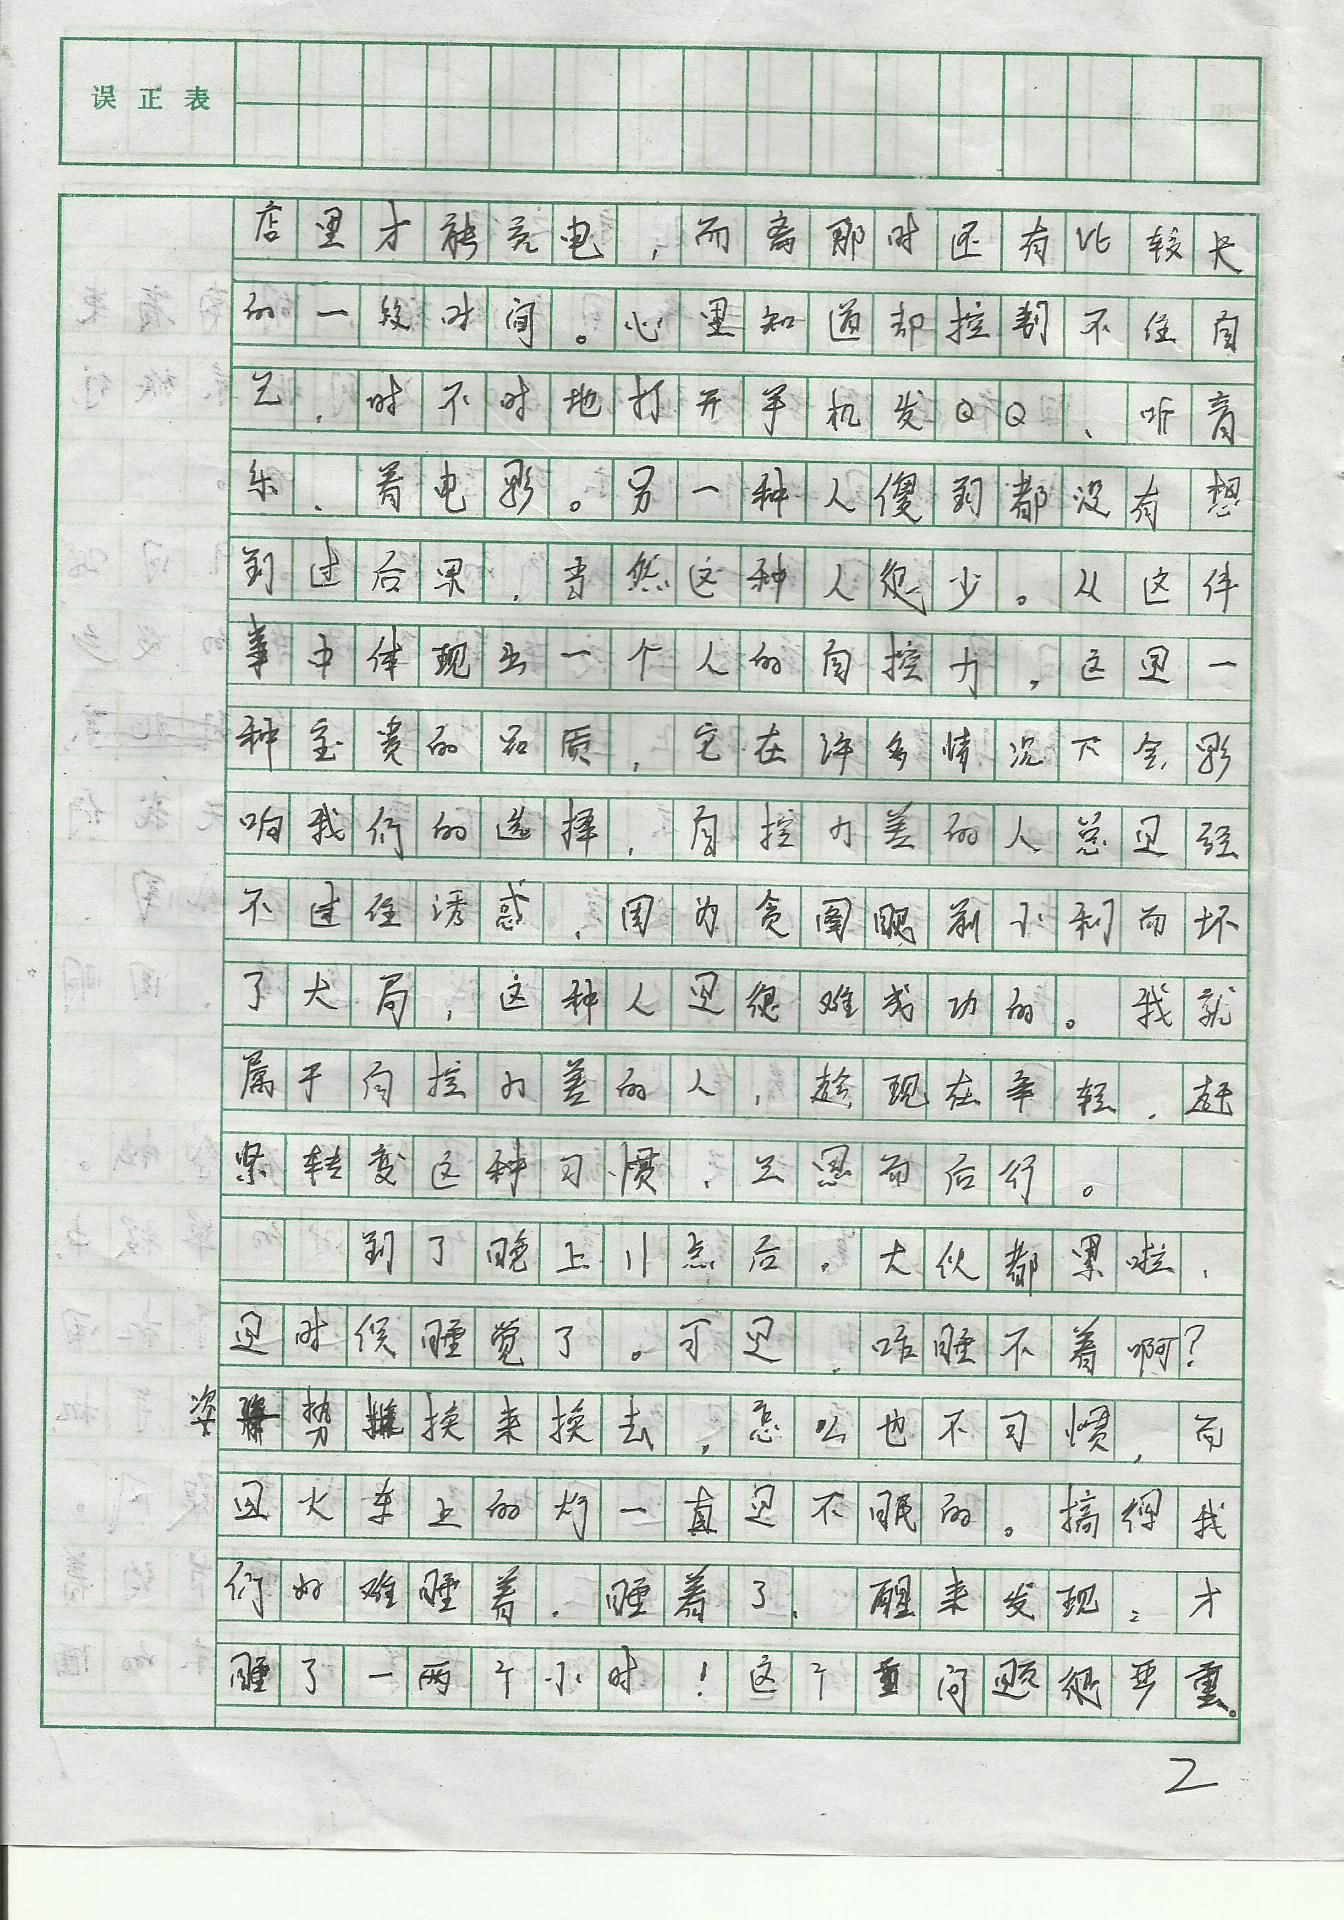 误正表
店里才能充电，而离那时还有比较长
的一段时间。心里知道却控制不住自
己，时不时地打开手机发QQ、听音
乐、看电影。另一种人傻到都没有想
到过后果，当然这种人很少。从这件
事中体现出一个人的自控力，这是一
种宝贵的品质，它在许多情况下会影
响我们的选择，自控力差的人总是经
不过住诱惑，因为贪图眼前小利而坏
了大局，这种人是很难成功的。我就
属于自控力差的人，趁现在年轻，赶
紧转变这种习惯，三思而后行。
到了晚上11点后。大伙都累啦，
是时候睡觉了。可是，咱睡不着啊？
姿势换来换去，怎么也不习惯，而
且火车上的灯一直是不眠的。搞得我
们好难睡着，睡着了，醒来发现，才
睡了一两个小时！这个重问题很严重。
2